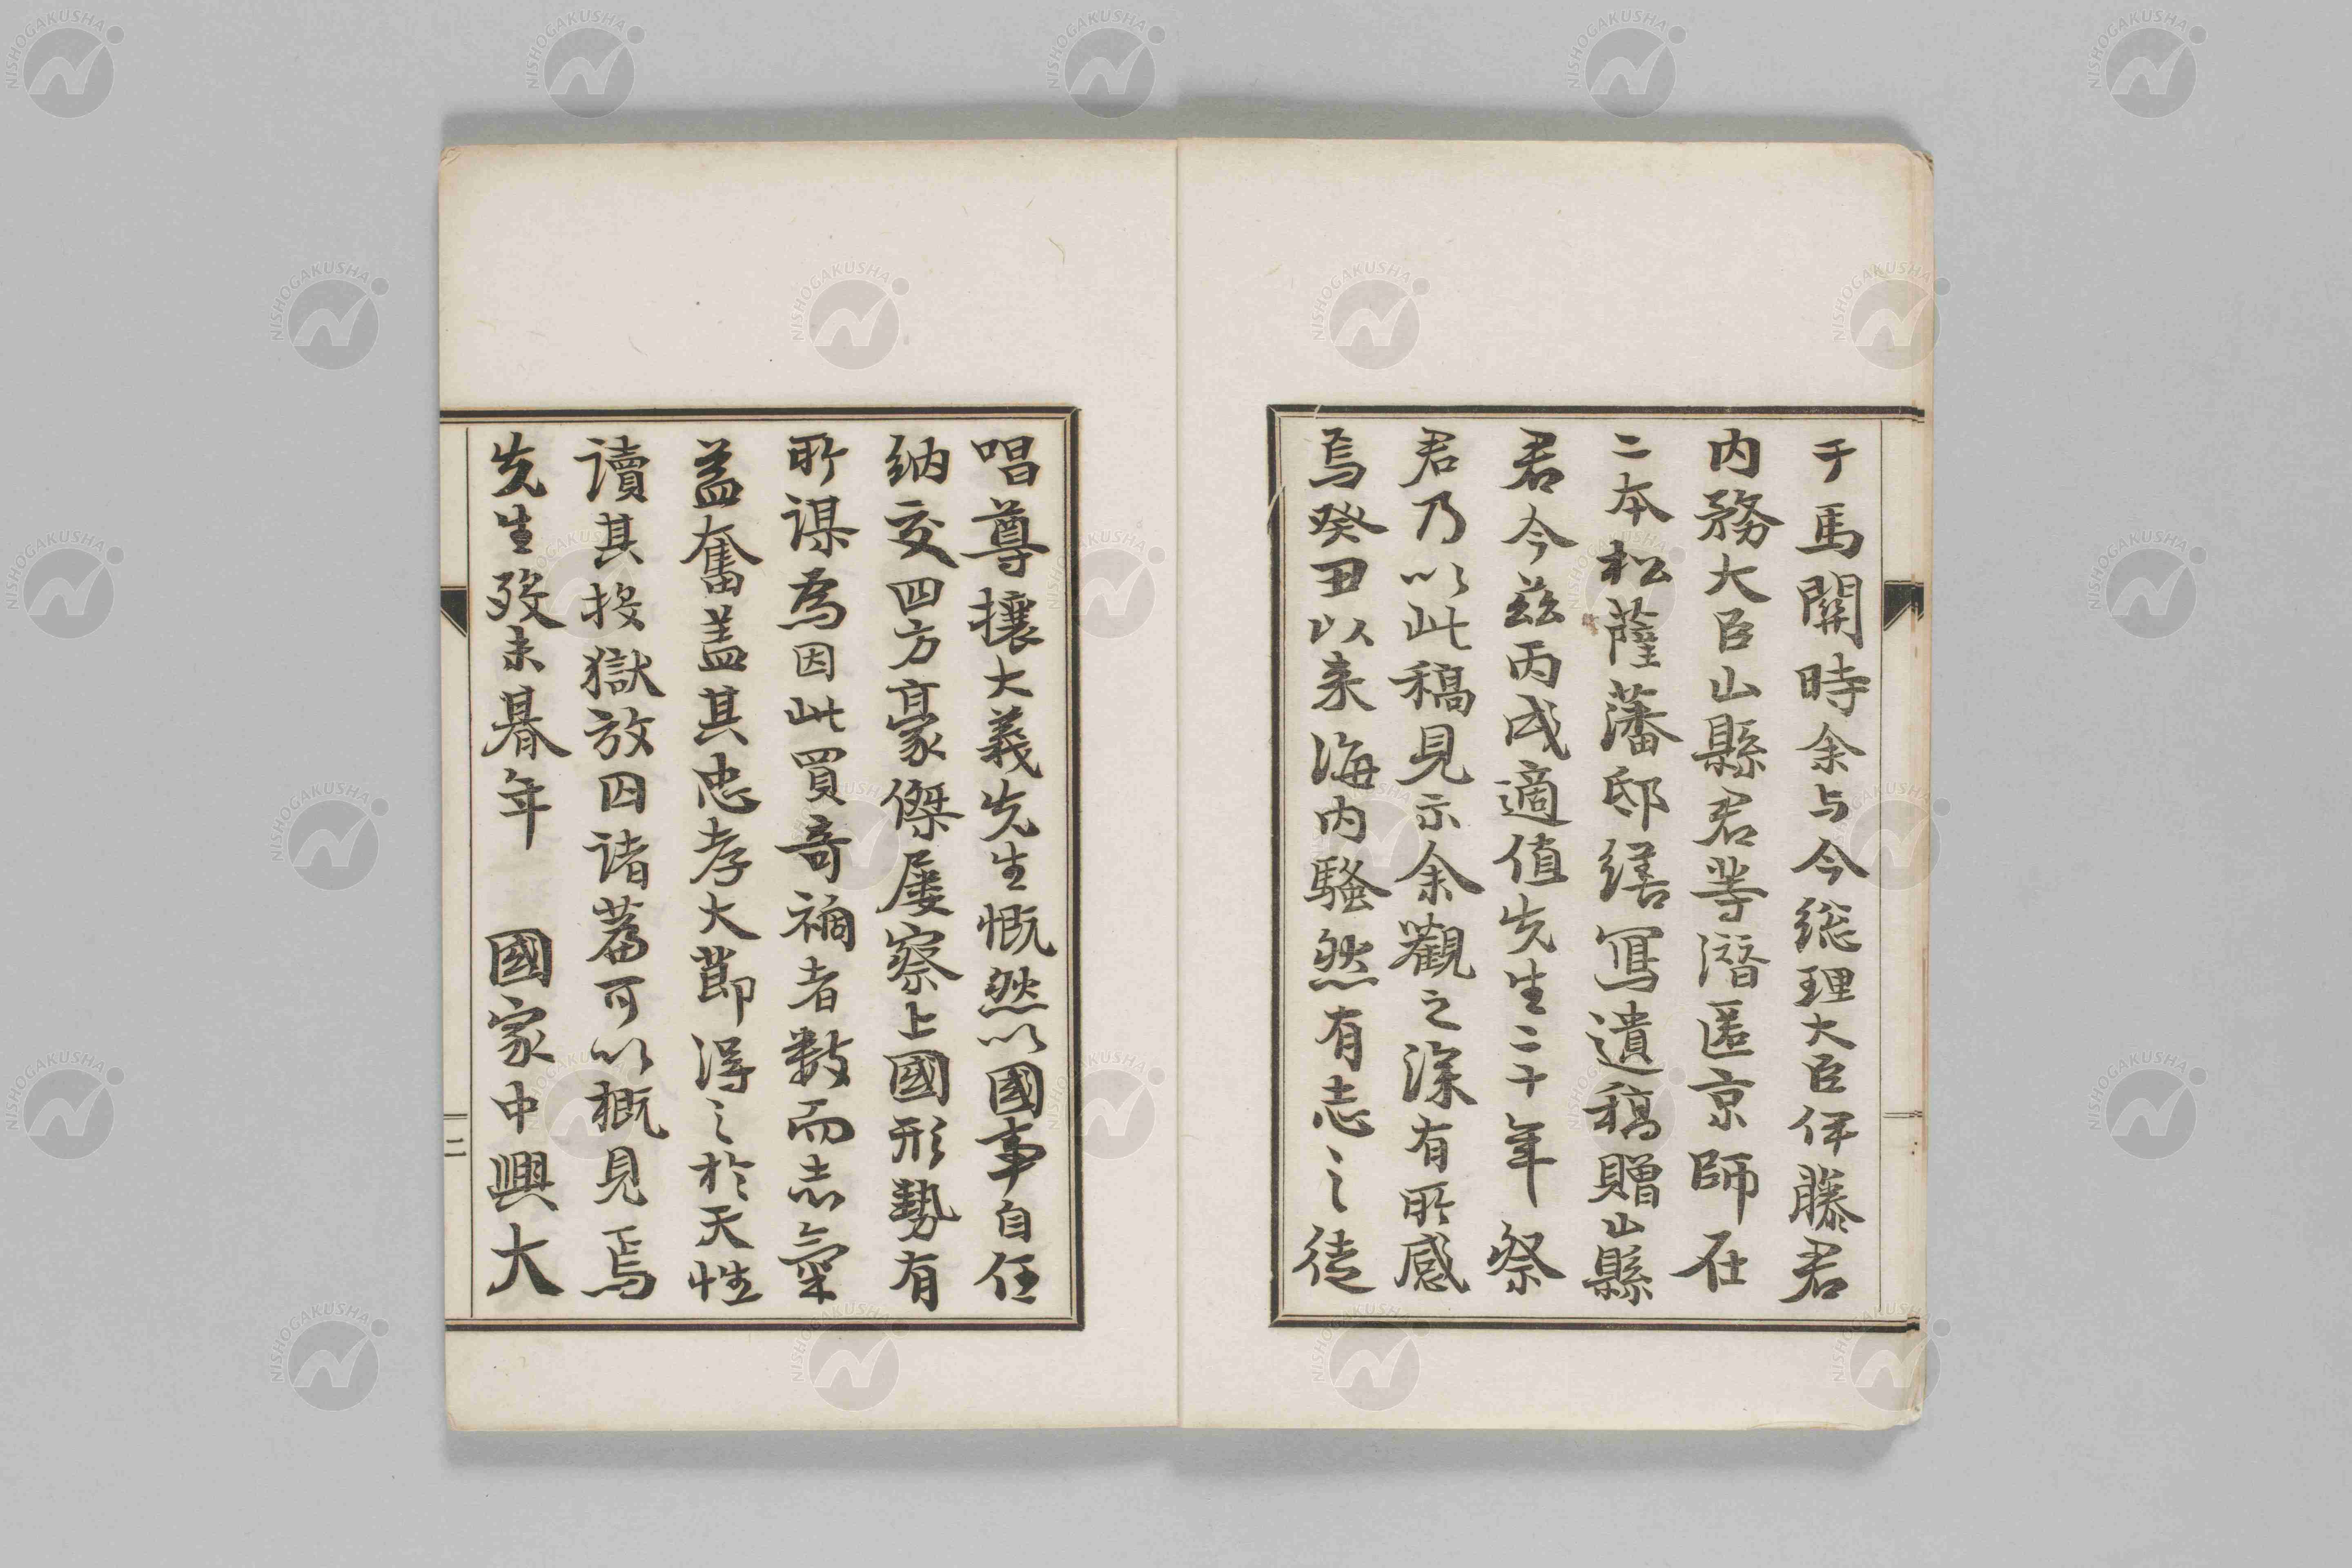 于馬關時余与今総理大臣伊藤君
内務大臣山縣君等潛匿京師在
二本松薩藩邸繕寫遺稿贈山縣
君今茲丙戌適值先生二十年祭
君乃以此稿見示余觀之深有所感
焉癸丑以来海内騷然有志之徒
唱尊攘大義先生慨然以國事自任
纳交四方豪傑屢察上國形勢有
所謀為因此買奇禍者数而志氣
益奮蓋其忠孝大節得之於天性
讀其投獄放囚诸篇可以概見焉
先生歿未朞年 國家中興大
二
NISHOGAKUSHA